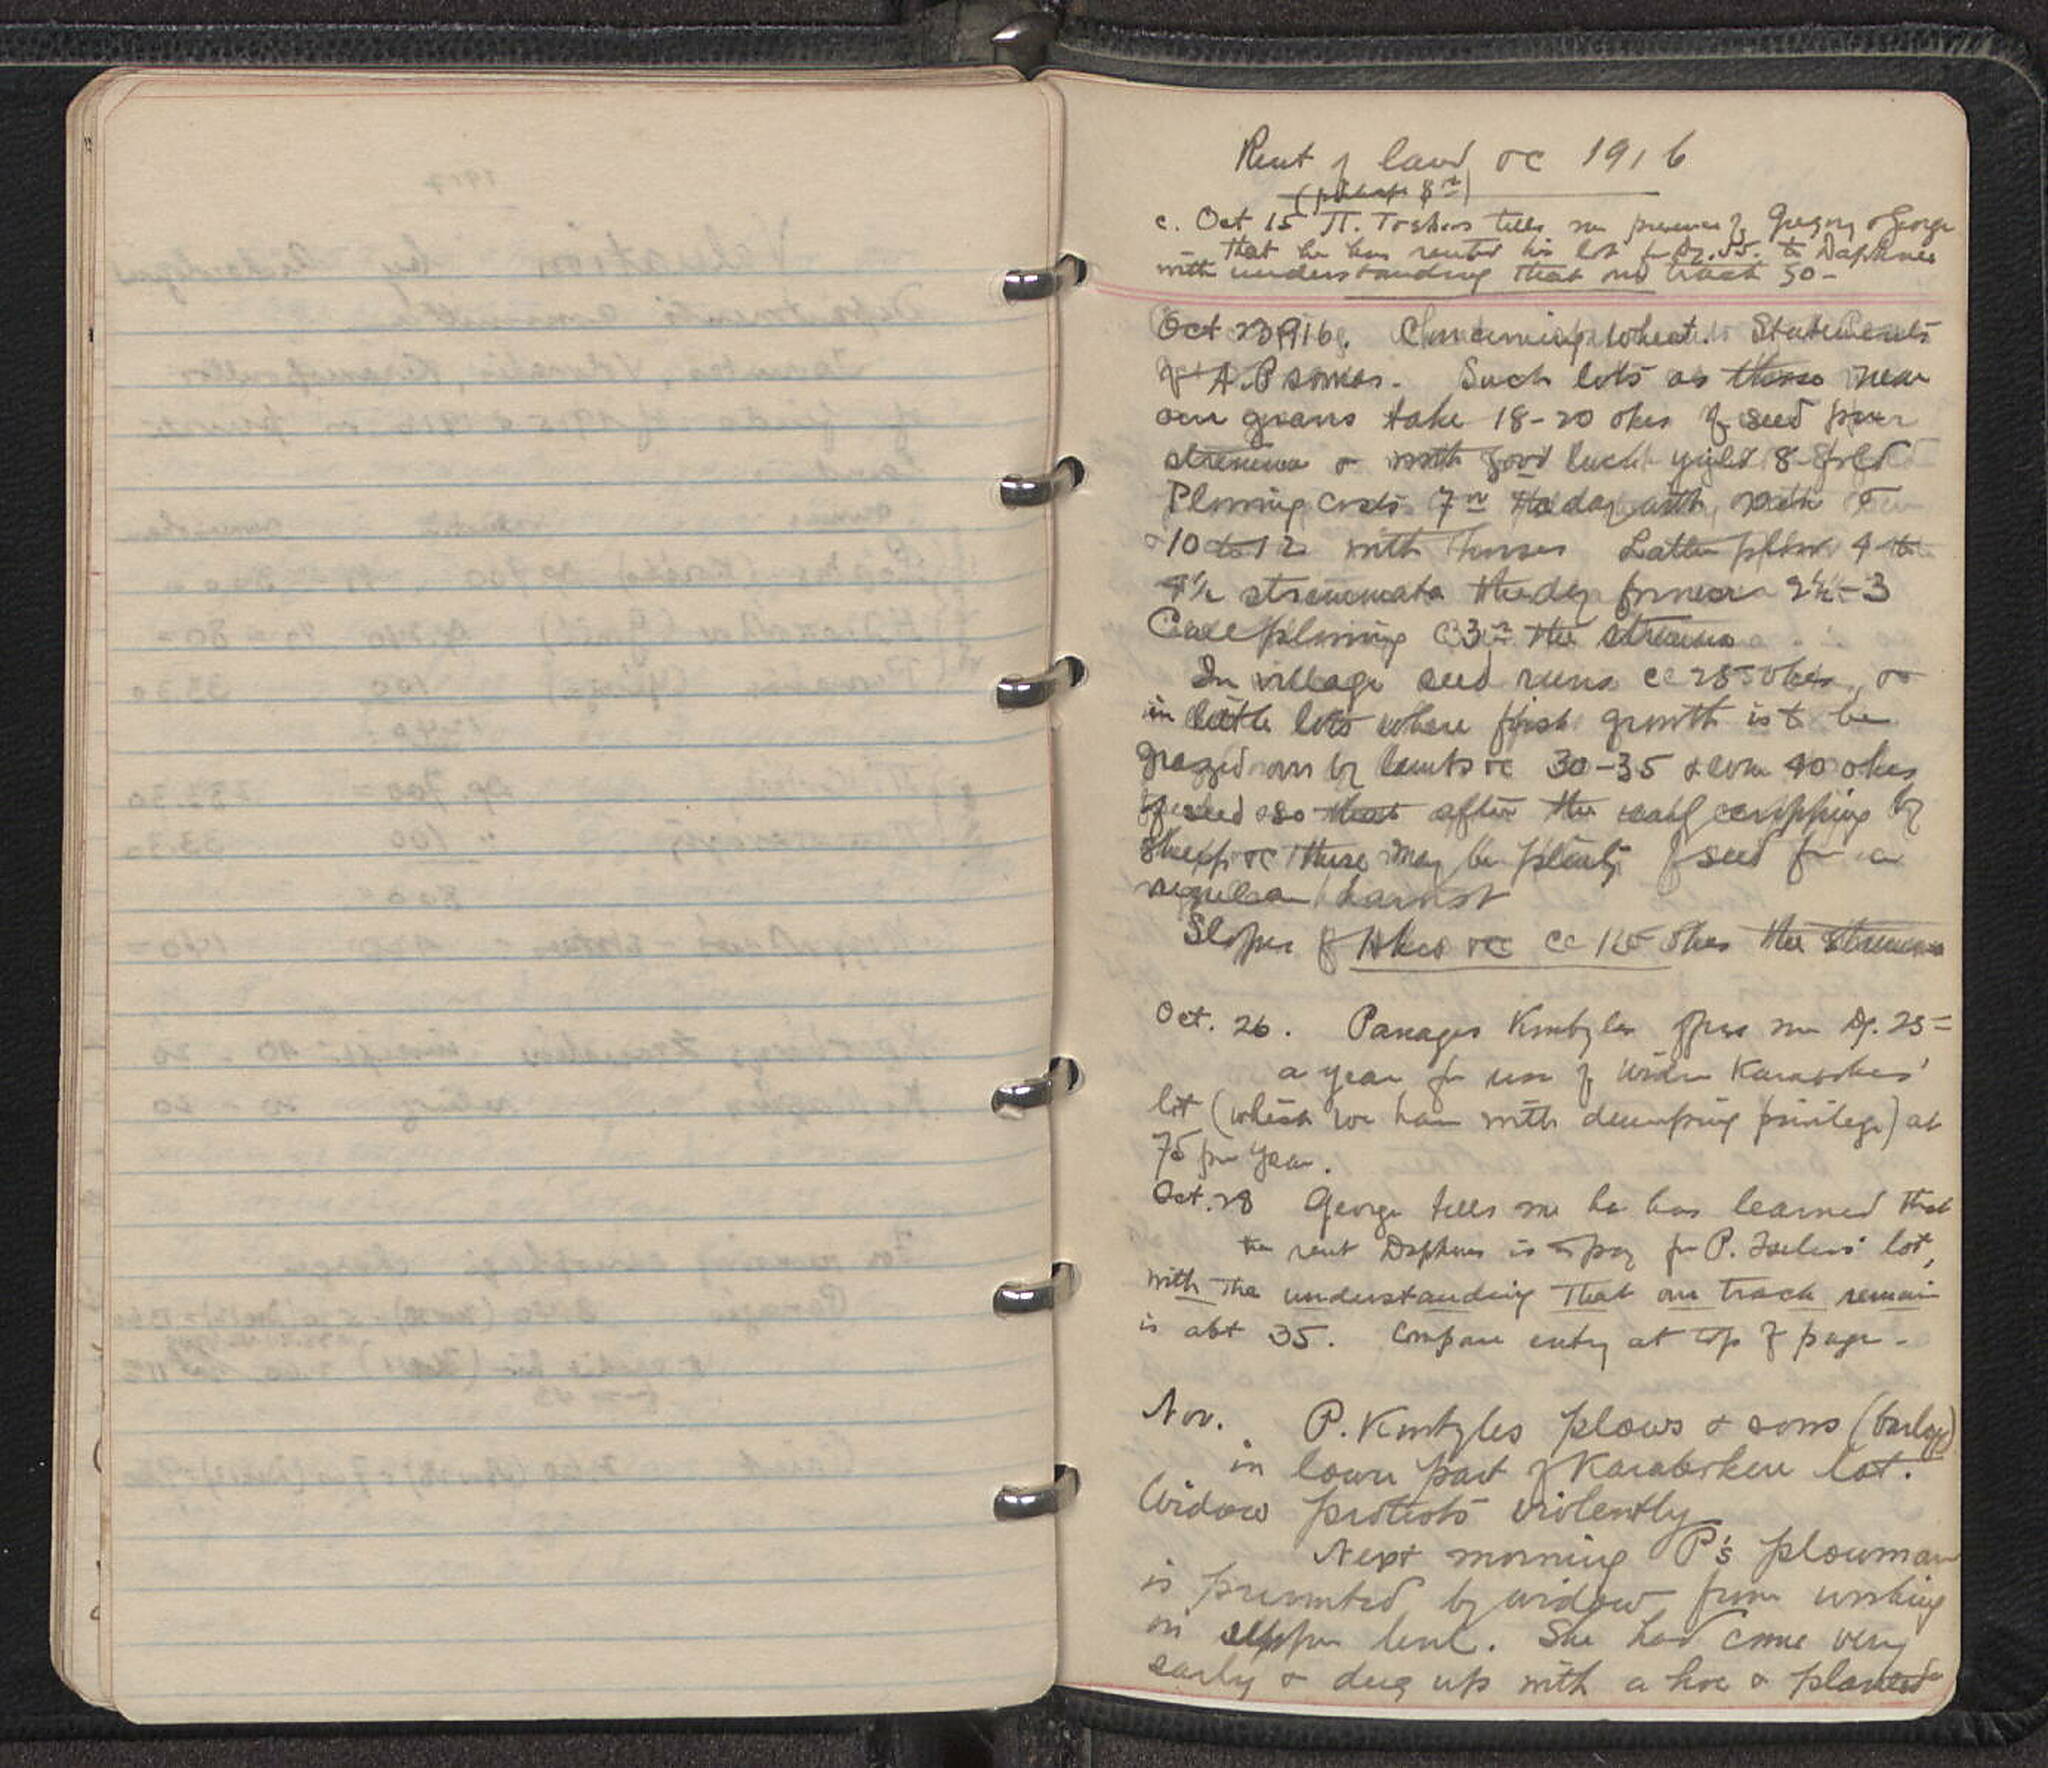 Rent of land etc 1916
c. Oct 15 Π. Tsekios tells me presence of Gregory & George
- that he has rented his lot for Dr. 55. to Daphnes
with understanding that our track so -
Oct 23 1916. Concerning wheat. Statements
of A. Psomas. Such lots as those near
our graves take 18-20 okes of seed per
stremma & with good luck yield 8-fold
Plowing costs 7 the day with
10 to 12 with horses Latter plow 4 to
4½ stremmata the day former 2½-3
plowing 3 the stremma
In village seed runs cc 25 okes, &
in little lots where first growth is to be
grazed over by lambs etc 30-35 & even 40 okes
of seed so that after the early cropping by
sheep etc there may be plenty of seed for a
regular harvest
Slopes of Akro etc cc 15 okes the stremma
Oct. 26. Panages Kmbyles offers me Dr. 25=
a year for use of widow Karaboikes'
lot (which we have with dumping privilege) at
75 per year.
Oct. 28 George tells me he has learned that
the rent Daphnes is to pay for P. Tsekios' lot,
with the understanding that our track remain
is abt 35. Compare entry at top of page -
Nov. P. Kmbyles plows & sows (barley)
in lower part of Karaboiken lot.
Widow protests violently
Next morning P's plowman
is prevented by widow from working
on upper level. She had come very
early & dug up with a hoe & planted